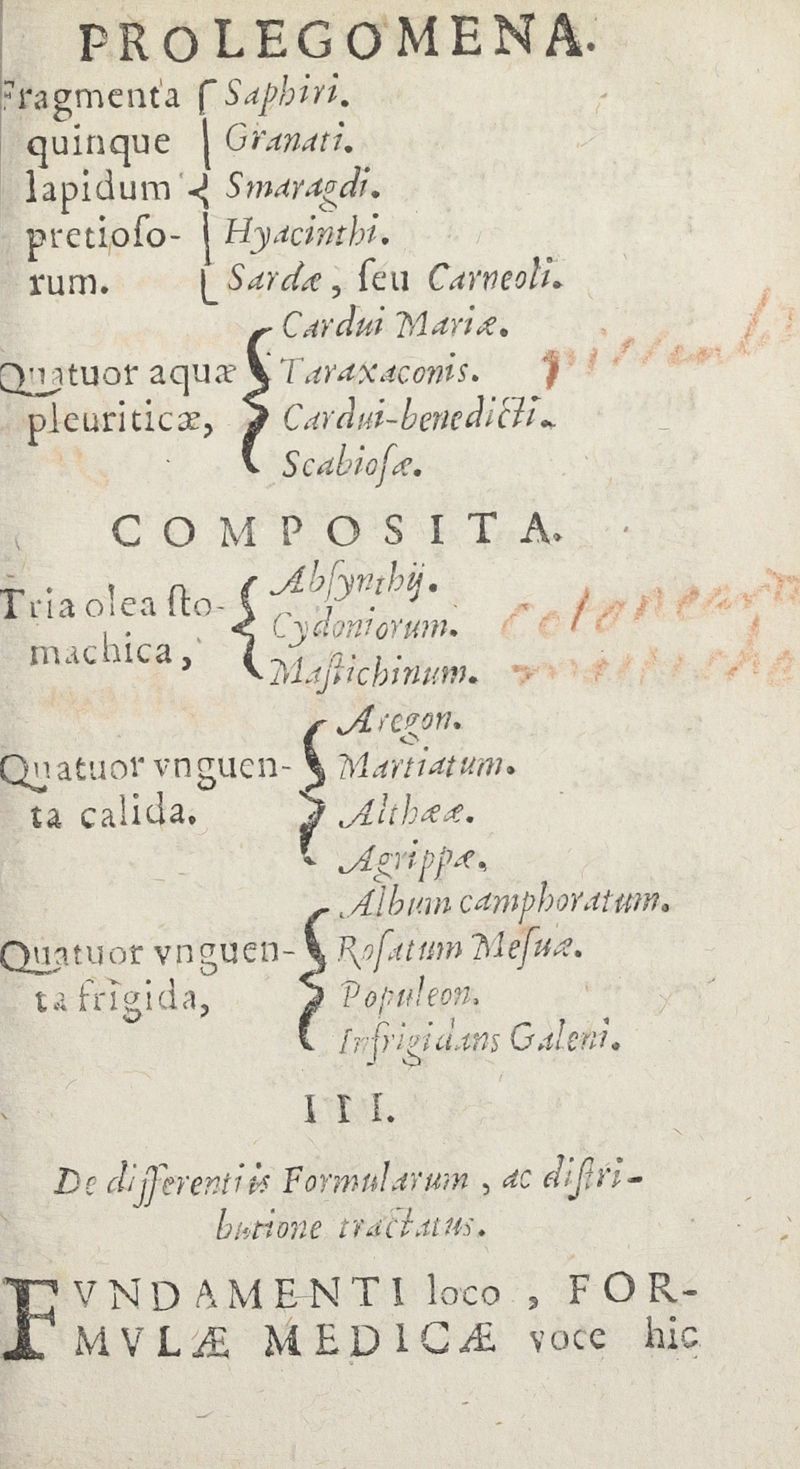 PROLEGOMENA.
Fragmenta { Saphiri.
quinque | Granati.
lapidum { Smaragdi.
pretioſo- | Hyacinthi.
rum. Sardæ, ſeu Carneoli.
Cardui Mariæ.
Quatuor aquæ { Taraxaconis.
pleuriticæ, Cardui-benedicti.
Scabioſæ.
COMPOSITA.
Tria olea ſto- { Abſynthij.
Cydoniorum.
machica,
Maſtichinum.
Aregon.
Quatuor vnguen- { Martiatum.
ta calida. Althææ.
Agrippæ.
Album camphoratum.
Quatuor vnguen- { Roſatum Meſuæ.
ta frigida, Populeon.
Infrigidans Galeni.
III.
De differentiis Formularum, ac diſtri-
butione tractatus.
FVNDAMENTI loco, FOR-
MVLÆ MEDICÆ voce hic